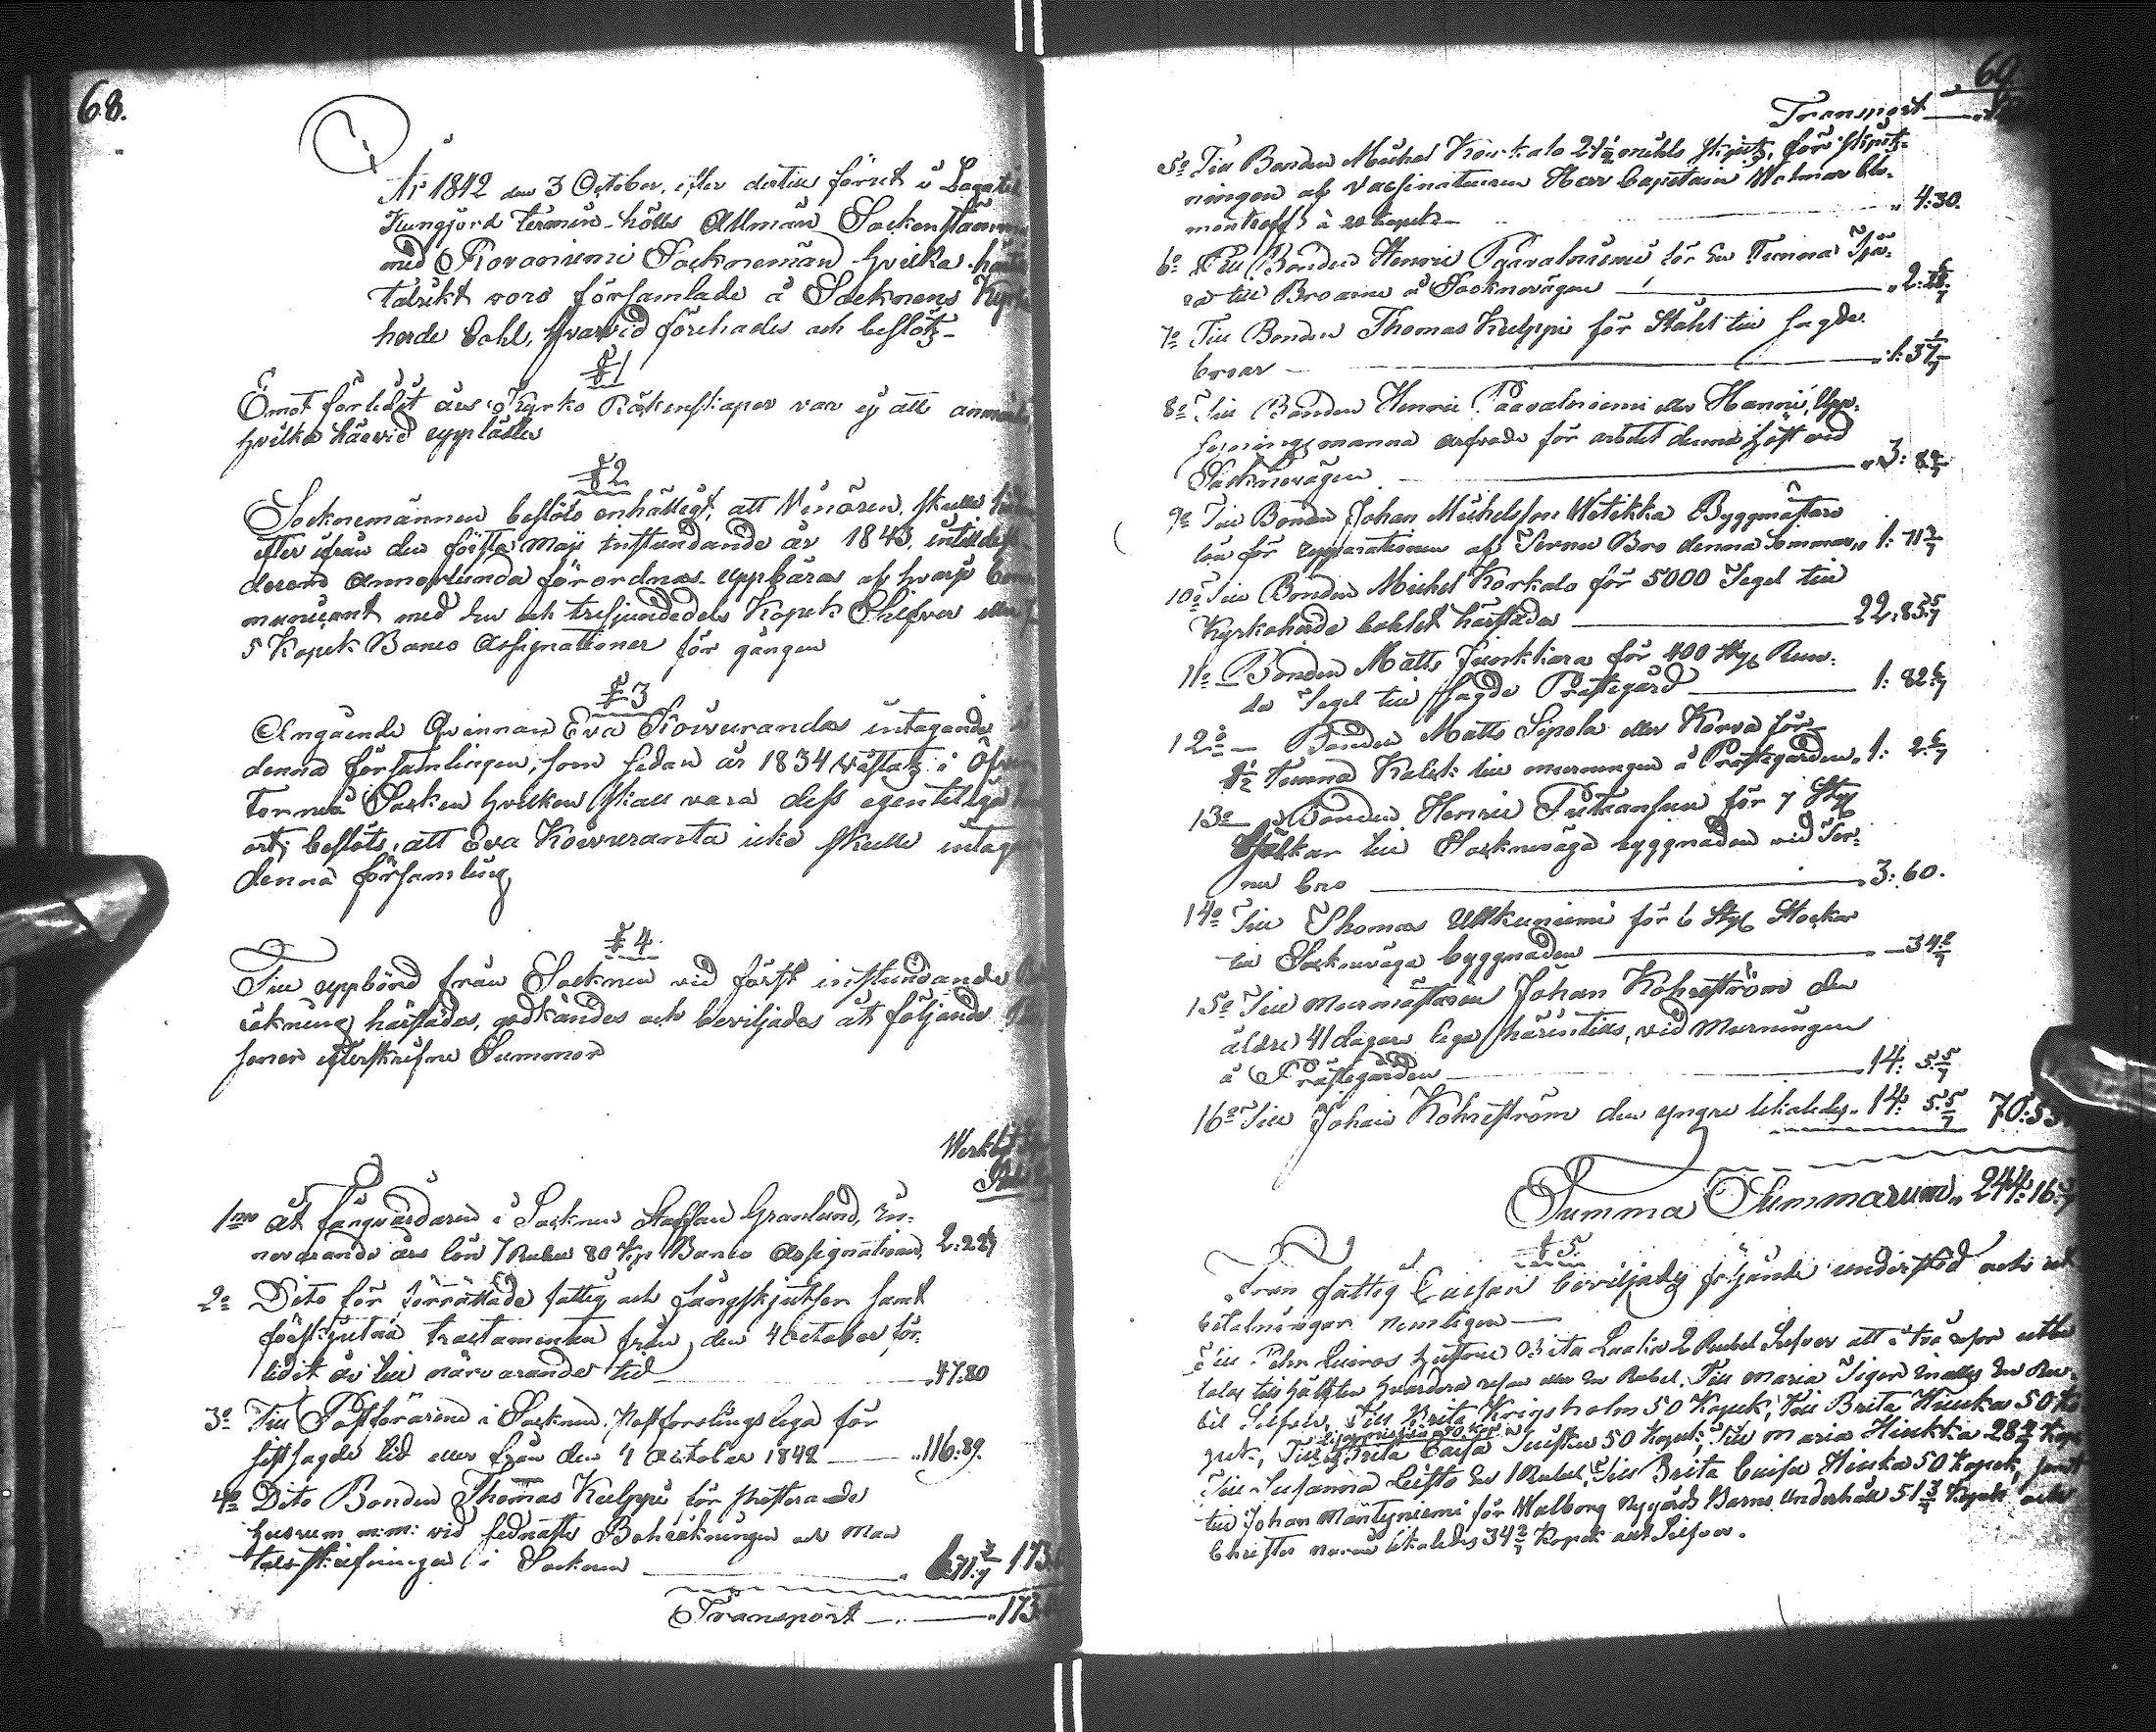 68.
År 1842 den 3 October, efter dertill förut i Laga tid
Kungjord termin hölls Allmän Sockenstämma
med Rovaniemi Socknemän hvilka
talrikt voro församlade å Socknens Kyrko
herde Bohl, hvarvid förehades och beslöts
§ 1
Emot förledit års Kyrko Räkenskaper var ej att anmärka
hvilka härvid upplästes
§ 2
Socknemännen beslöto enhälligt, att Vinören skulle
efter ifrån den första Maji instundande år 1843, intill dess
derom annorlunda förordnas uppbäras af hvarje Com
municant med en och tresjundedels Kopek Silfver eller
5 Kopek Banco Assignationer för gången
§ 3
Angående Qvinnan Eva Koivurandas intagande i
denna församlingen, som sedan år 1834 vistats i Öfver
Torneå Socken hvilken skall vara dess egentliga
ort; beslöts, att Eva Koivuranta icke skulle intagas
denna församling
§ 4.
Till uppbörd från Socknen vid först instundande
räkning härstädes, godkändes och beviljades åt följande Per
soner efterskrifne Summor
1mo åt fångvårdaren i Socknen Staffan Granlund, in-
nevarande års lön 7 Rubel 80 Kop Banco Assignationer, 2:22 6/7
2o Dito för förrättade fattig och fångskjutser samt
förskjutna tractamenten från den 4 October för-
lidit år till närvarande tid 47.80
3o Till Postförarene i Socknen Postforslings lega för
sistsagde tid eller från den 4 October 1842 116.89.
4o Dito Bonden Thomas Kulppi för presterande
husrum m:m: vid sednaste Bohräkningen och Man
talsskrifningen i Socknen 6:71 3/7 173
Transport 173
69.
Transport
5o Till Bonden Michel Korkalo 21 1/2 mihls skjuts, för skjuts-
ningen af Vaccinateuren Herr Capitain Walmar Cle-
menteoff à 20 kopek 4:30.
6o Till Bonden Henric Paavalniemi för En Tunna Tjä-
ra till Broarne å Socknevägen 2:28 4/7
7o Till Bonden Thomas Kulppi för Stahl till sagde
broar 1:37 1/7
8o Till Bonden Henric Paavalniemi eller Hannu, Upp-
syningsmanna arfvode för arbetet denna höst vid
Socknevägen 3:
9o Till Bonden Johan Michelsson Wetikka Byggmästare
lön för reparationen af Bro denna Sommar 1:71 3/7
10o Till Bonden Michel Korkalo för 5000 Tegel till
Kyrkoherde bohlet härstädes 22:85 5/7
11o Bonden Matts Junkkara för 400 Styc Run-
da Tegel till sagde Prästegård 1: 82 6/7
12o Bonden Matts Sipola eller Korva för
1 1/2 Tunna Kalck till murningen å Prästegården 1: 2 6/7
13o Bonden Henric för 7 Styc
Bjelkar till Socknevägs byggnaden vid
bro 3:60.
14o Till Thomas Ullkuniemi för 6 Styc Stockar
till Sockneväga byggnaden 34 2/7
15o Till Murmästaren Johan Kohrström den
äldre 41 dagars lega härintills, vid Murningen
å Prästegården 14: 5 5/7
16o Till Johan Kohrström den yngre likaledes 14: 5 5/7 70:53
Summa Summarum 244:16
§ 5.
Från fattig Cassan beviljades följande understöd och ut
betalningar nemligen
Till Pehr hustru Brita 2 Rubel Silfver att i två resor utbe
talas till hälften hvardera resan eller En Rubel, Till Maria Tiger En Ru-
bel Silfver, Till Brita Krigsholm 50 Kopek, Till Brita Hiuka 50 Ko
pek, Till Brita Caisa 50 Kopek, Till Maria Hiukka 28 4/7 Kop
Till Susanna En 1 Rubel, Till Brita Caisa Hiuka 50 Kopek, samt
till Johan Mäntyniemi för Walborg Nygårds Barns Underhåll 51 3/7 Kopek och
Christer likaledes 34 2/7 Kopek allt Silfver.